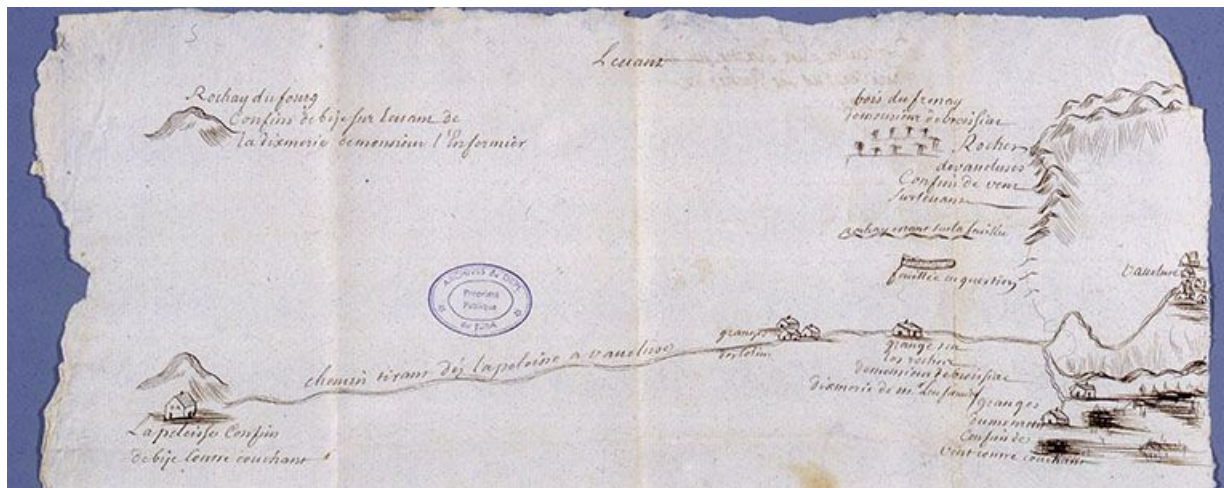 Leuant
Rochay du fourg
Confins de bize sur leuant de
la dixmerie de monsieur l'Infirmier
bois du frenay
de monsieur de broissiac
Rocher
de vaucluses
Confin de vent
sur leuant
rochay errant sur la fuillee
fuillée en question
vaucluse
ARCHIVES du DEPt
Propriété
Publique
du JURA
chemin tirant dés la peloise a vaucluse
granges
grange sur
les rocher
de monsieur de broissiac
dixmerie de mr
granges
Confin de
vent contre couchant
La peloisse Confins
de bize contre couchant